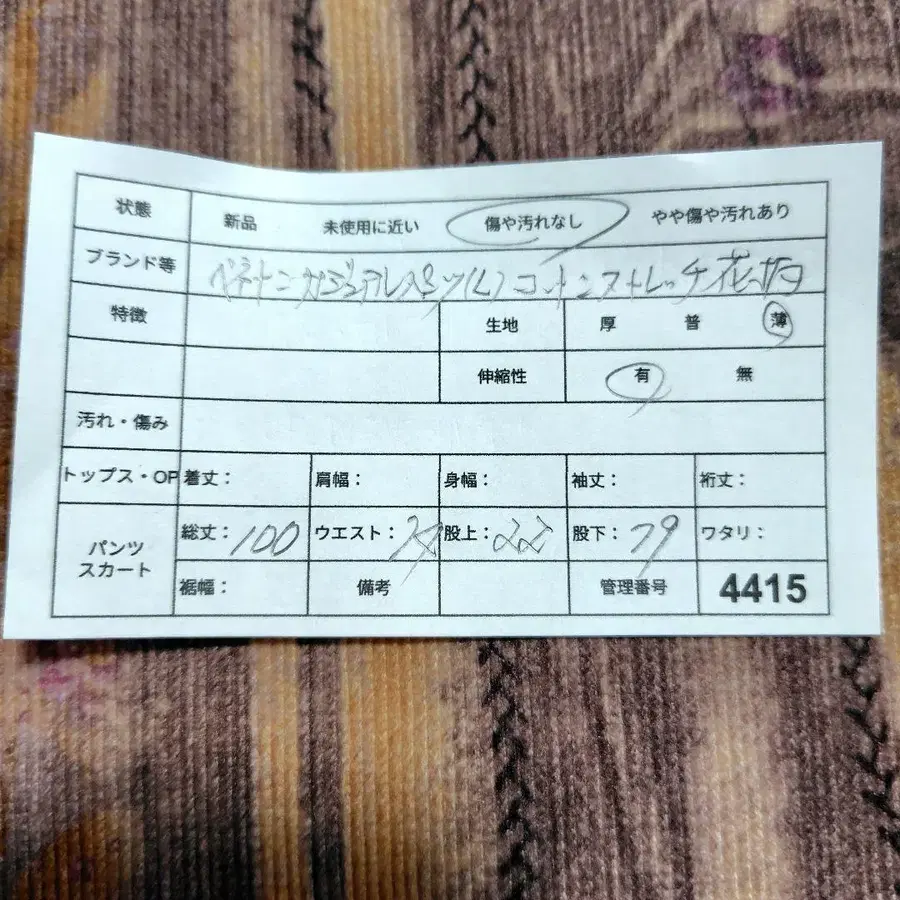 状態 新品 未使用に近い 傷や汚れなし やや傷や汚れあり
ブランド等 ベネトン カジュアルパンツ(L) コットンストレッチ 花柄
特徴 生地 厚 普 薄
伸縮性 有 無
汚れ・傷み
トップス・OP 着丈: 肩幅: 身幅: 袖丈: 裄丈:
パンツ スカート
総丈:100 ウエスト: 股上:22 股下:79 ワタリ:
裾幅: 備考 管理番号 4415